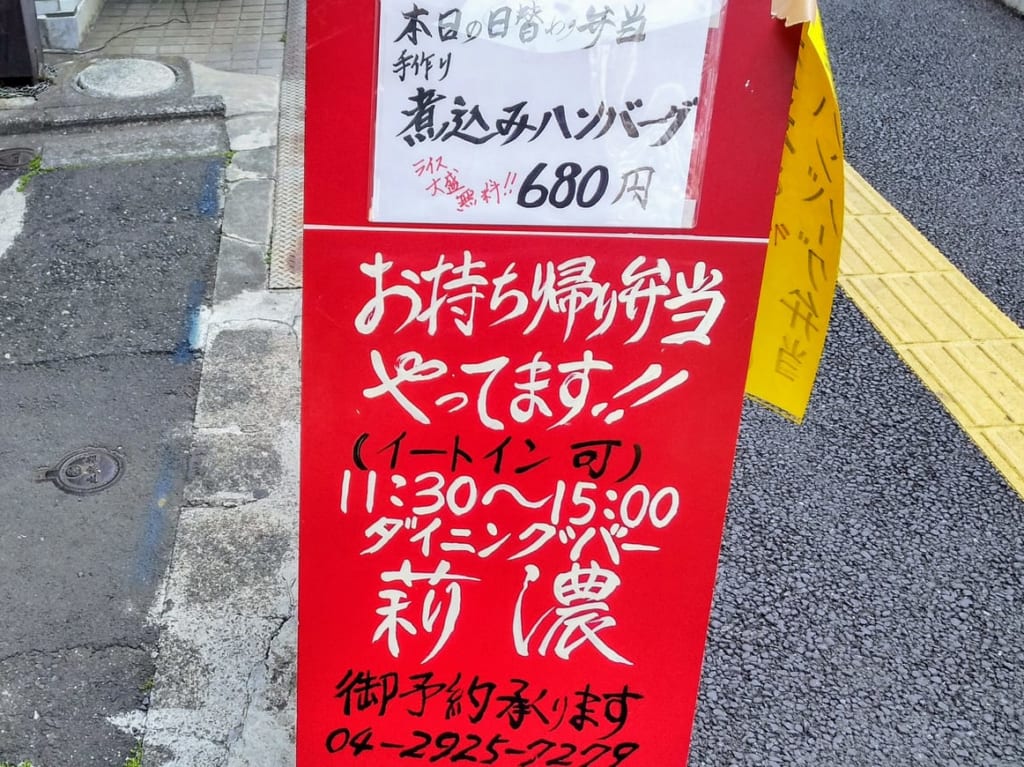 本日の日替わり弁当
手作り
煮込みハンバーグ
ライス
大盛
無料!!
680円
お持ち帰り弁当
やってます!!
(イートイン 可)
11:30〜15:00
ダイニングバー
莉濃
御予約承ります
04-2925-7279
ハンバーグ弁当